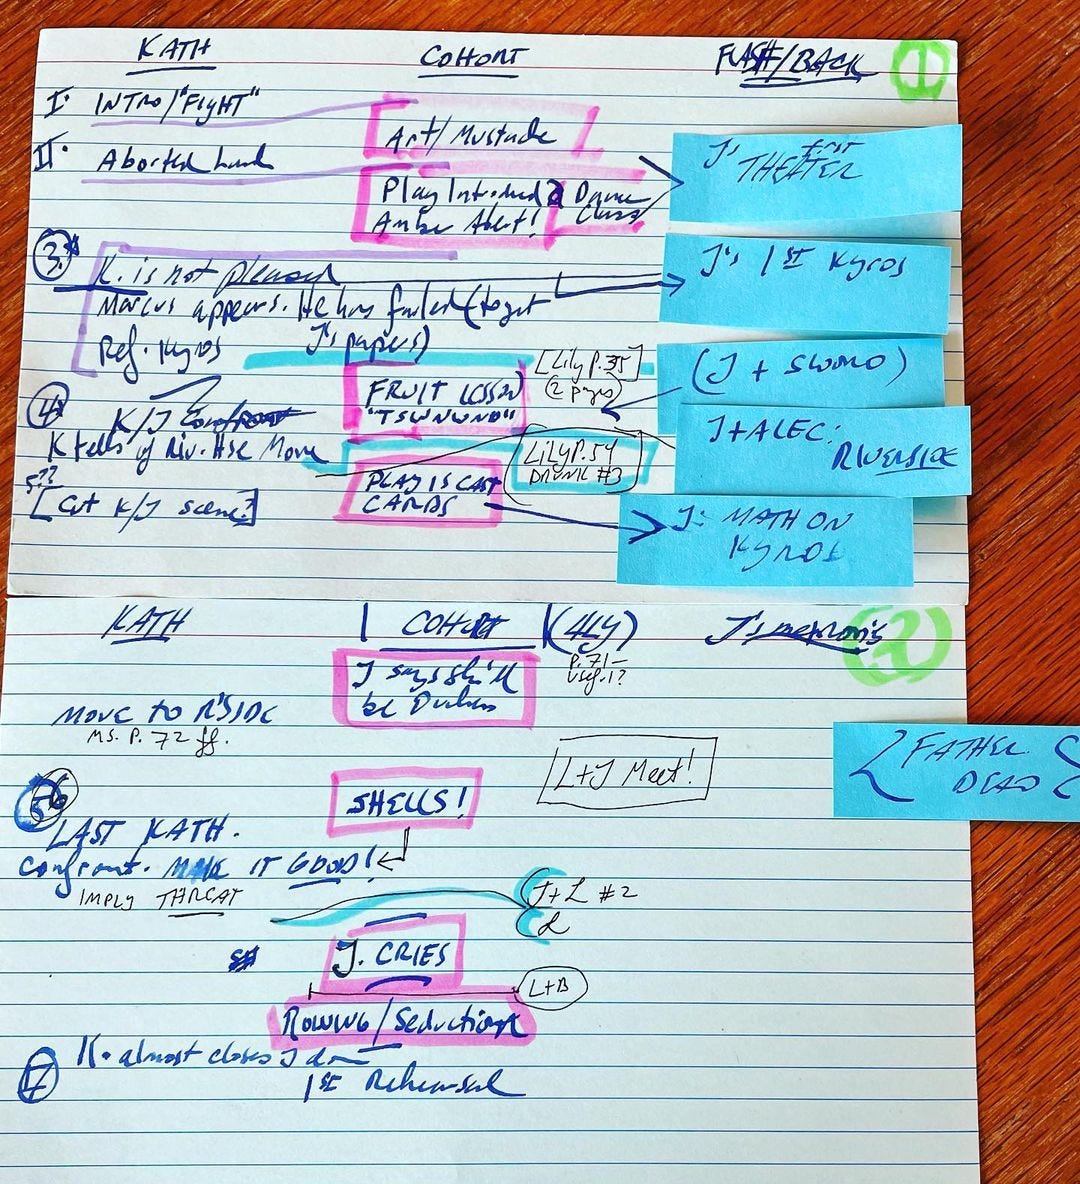 KATH
COHORT
FLASH/BACK
1
I. INTRO/"FIGHT"
Art/Mustache
II. Aborted Lunch
J's first
THEATER
Play Introduced
Amber Alert!
Dance
Class
3.
K. is not pleased
Marcus appears. He has failed (to get
J's papers)
Ref. Kyros
J's 1ST Kyros
[Lily P.35]
(2 pages)
(J + SWORD)
4.
FRUIT LESSON
"TSWNWND"
K/J
K tells of Riv. Hse Move
LILY P.54
DRUNK #3
J+ALEC:
RIVERSIDE
5??
[Cut K/J scene?]
PLAY IS CAST
CARDS
J: MATH ON
KYROS
KATH
COHORT
(LILY)
J's
2
P. 71-
J says she'll
be Duchess
MOVE TO R'SIDE
MS. P. 72 ff.
L+J Meet!
FATHER
DEAD
6
SHELLS!
LAST KATH.
Confront. MAKE IT GOOD!
IMPLY THREAT
J+L #2
L
J. CRIES
L+B
ROWING/Seduction
7
K. almost closes J down
1ST Rehearsal